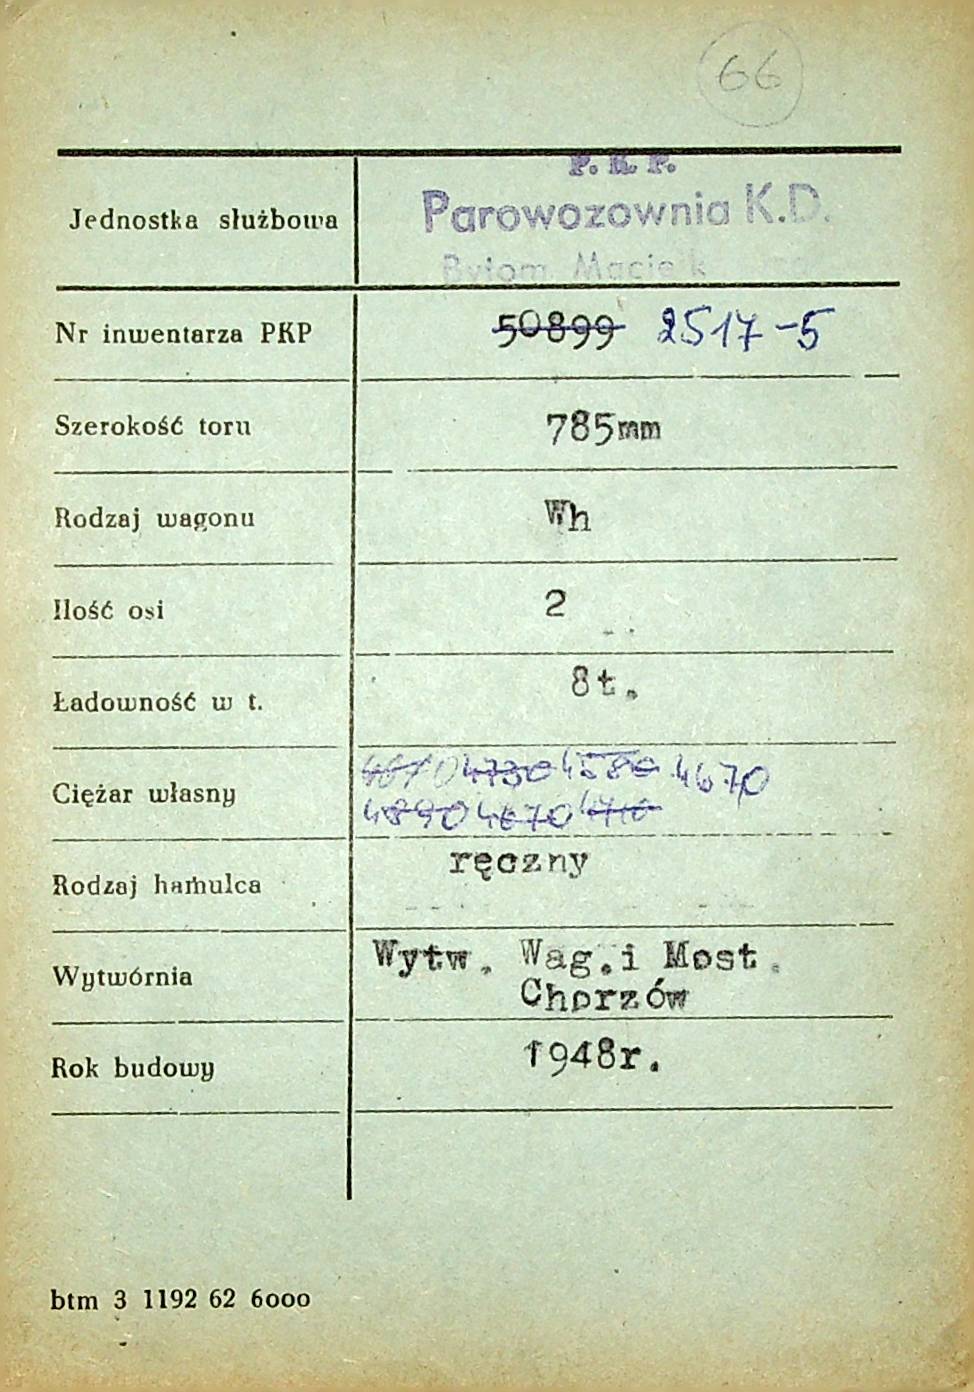 66
P. K. P.
Jednostka służbowa Parowozownia K.D.
Bytom
Nr inwentarza PKP 50899 2517-5
Szerokość toru 785mm
Rodzaj wagonu Wh
Ilość osi 2
Ładowność w t. 8t.
4730 4580 4670
Ciężar własny
4890 4670 4710
Rodzaj hamulca ręczny
Wytwórnia Wytw. Wag.i Most.
Chorzów
Rok budowy 1948r.
btm 3 1192 62 6000